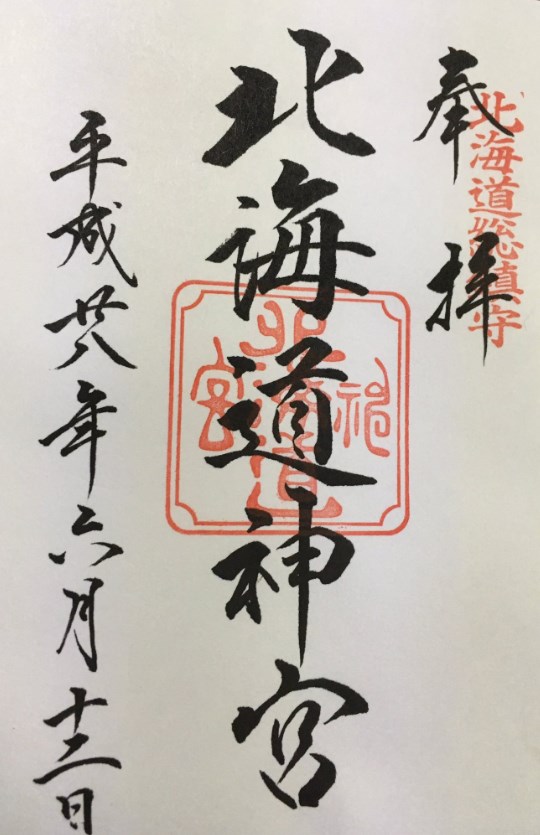 奉拝
北海道総鎮守
北海道神宮
北海道神宮
平成廿八年六月十二日